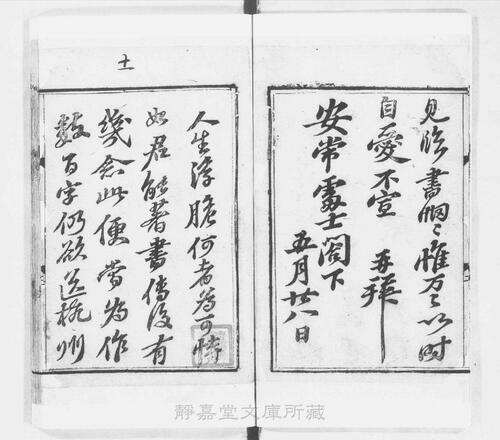 見臨書惘〻惟万〻以时
自愛不宣 再拜
安常處士閣下
五月廿八日
十一
人生浮脆何者為可恃
如君能著書傳後有
幾念此便當為作
數百字仍欲送杭州
靜嘉堂文庫所藏